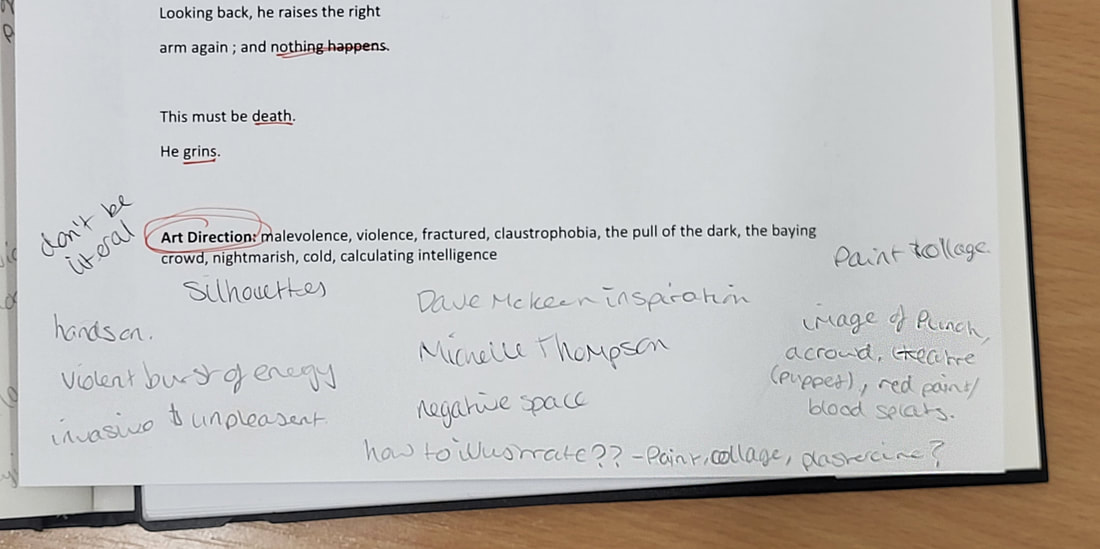 Looking back, he raises the right
arm again ; and nothing happens.
This must be death.
He grins.
don't be
literal
Art Direction: malevolence, violence, fractured, claustrophobia, the pull of the dark, the baying
crowd, nightmarish, cold, calculating intelligence
Silhouettes
hands on.
violent burst of energy
invasive & unpleasent
Dave Mckean inspiration
Michelle Thompson
negative space
Paint collage
image of Punch,
a crowd, theatre
(puppet), red paint/
blood splats.
how to illustrate?? - Paint, collage, plastercine?